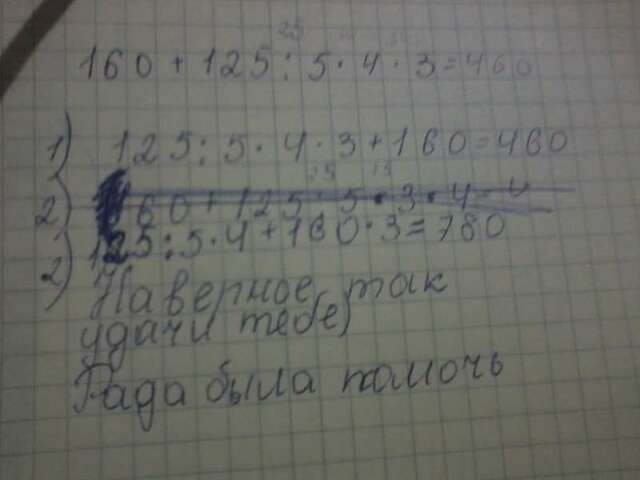 160 + 125 : 5 · 4 · 3 = 460
1) 125 : 5 · 4 · 3 + 160 = 460
2) 160 + 125 : 5 · 3 · 4 = 4
2) 125 : 5 · 4 + 160 · 3 = 780
Наверное так
удачи тебе)
Рада была помочь